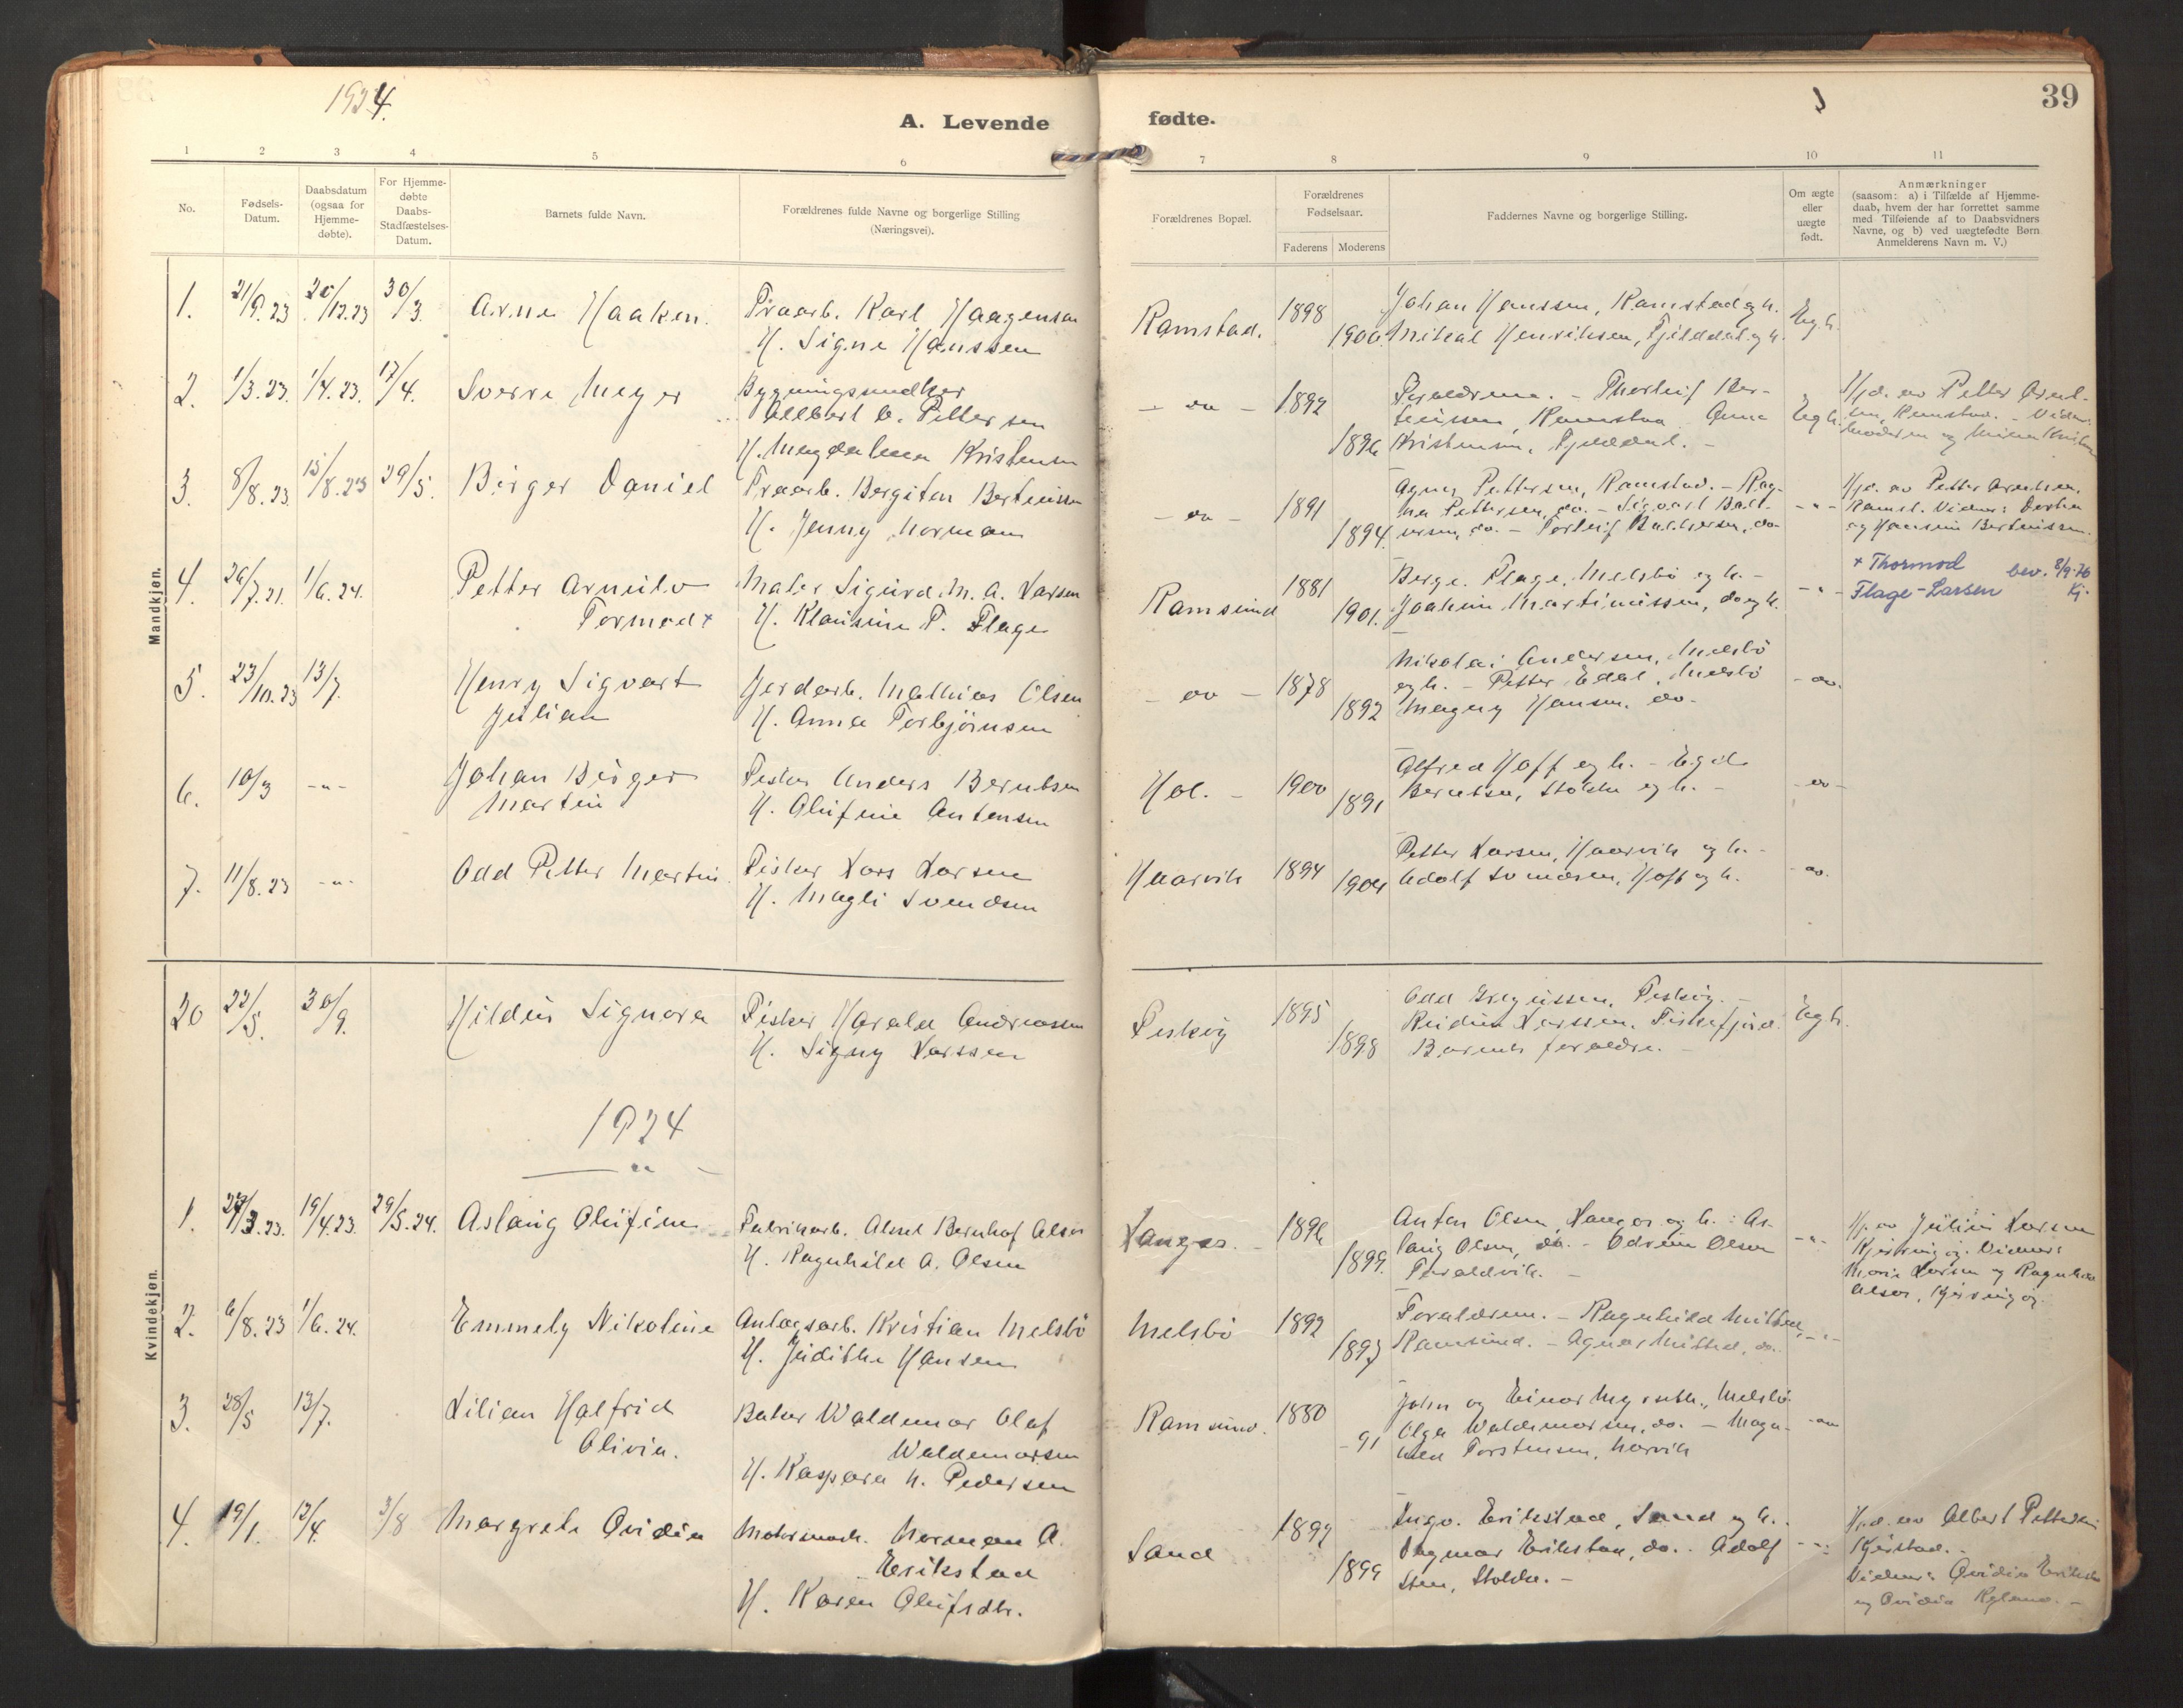 1924.
A. Levende fødte.
39
1 2 3 4 5 6 7 8 9 10 11
No.
Fødsels-
Datum.
Daabsdatum
(ogsaa for
Hjemme-
døbte).
For Hjemme-
døbte
Daabs-
Stadfæstelses-
Datum.
Barnets fulde Navn.
Forældrenes fulde Navne og borgerlige Stilling
(Næringsvei).
Forældrenes Bopæl.
Forældrenes
Fødselsaar.
Faderens Moderens
Faddernes Navne og borgerlige Stilling.
Om ægte
eller
uægte
født.
Anmærkninger
(saasom: a) i Tilfælde af Hjemme-
daab, hvem der har forrettet samme
med Tilføiende af to Daabsvidners
Navne, og b) ved uægtefødte Børn
Anmelderens Navn m. V.)
Mandkjøn.
1. 21/9.23 20/12.23 30/3. Arne Haaken.
Praarb. Karl Haagensen
H. Signe Hanssen
Ramstad. 1898 1900.
Johan Hanssen, Ramstad og h.
Mikal Henriksen, Fjelddal og h.
Egte.
2. 1/3.23. 1/4.23. 17/4. Sverre Meyer
Bygningssnedker
Albert O. Pettersen
H. Magdalena Kristensen
- do - 1892 1896
Foreldrene. - Thorleif Ber-
teussen, Ramstad Anna
Kristensen, Fjelddal. -
Hjd. av Petter Arent-
sen, Ramstad. -
3. 8/8.23. 15/8.23 29/5. Birger Daniel
Praarb. Bergiton Berteussen
H. Jenny Norman
- do - 1891 1894.
Agnes Pettersen, Ramstad. - Rag-
na Pettersen, do. - Sigvart Balt-
sersen, do. - Torleif Baltsersen, do
- " -
Hjd. av Petter Arentsen,
Ramst. Vidner: Dorthea
og Hansine Berteussen.
4. 26/7.21. 1/6.24. Petter Arnulv
Tormod x
Maler Sigurd M. A. Larsen
H. Klausine P. Flage
Ramsund 1881 1901.
Berge Flage, Melsbö og h. -
Joakim Martinussen, do og h.
- " -
x Thormod
Flage-Larsen bev. 8/9-76
Kj.
5. 23/10.23 13/7. Henry Sigvart
Julian
Jordarb. Mathias Olsen
H. Anna Torbjörnsen
- do - 1878 1892
Nikolai Andersen, Melsbö
og h. - Petter Edal, Melsbö
Magny Hansen, do.
- do.
6. 10/3 - " - Johan Birger
Martin
Fisker Anders Berntsen
H. Olufine Antonsen
Hol. - 1900 1891
Alfred Hoff og h. - Egil
Berntsen, Stokke og h. -
- do -
7. 11/8.23 - " - Odd Petter Martin
Fisker Lars Larsen
H. Magli Svendsen
Haarvik 1894 1904
Petter Larsen, Haarvik og h. -
Adolf Svendsen, Hoff og h.
- do.
20 22/5. 30/9. Hildur Signora
Fisker Harald Andreassen
H. Signy Larssen
Feskeög 1895 1898
Odd Gregussen, Feskeög. -
Reidun Larssen, Fiskefjord.
Barnets foreldre. -
Egte.
1924
Kvindekjøn.
1. 27/3.23. 19/4.23. 29/5.24. Aslaug Olufine
Fabrikarb. Aksel Bernhof Olsen
H. Ragnhild A. Olsen
Langes. - 1896 1899.
Anton Olsen, Langes og h. : As-
laug Olsen, do. - Odrun Olsen
- " -
Hj. av Julius Larsen
Vidner:
Marie Larsen og Ragnhild
Olsen,
2. 6/8.23 1/6.24. Emmely Nikoline
Anlægsarb. Kristian Melsbö
H. Judithe Hansen
Melsbö 1892 1897
Foreldrene. - Ragnhild
Ramsund. - Agnar do.
- " -
3. 28/5 13/7. Lilian Halfrid
Olivia.
Baker Waldemar Olaf
Waldemarsen
H. Kaspara N. Pedersen
Ramsund. 1880 - 91
John og Einar Myrseth, Melsbö
Olga Waldemarsen, do. - Magn-
hild Torstensen, Narvik
- do
4. 19/1. 13/4. 3/8 Margrete Ovidia
Motormask. Norman A.
Erikstad
H. Karen Olufsdtr.
Sand 1897 1899
Ingv. Erikstad, Sand og h. -
Dagmar Erikstad, do. - Adolf
Steen, Stokke. -
- " -
Hjd. av Albert Pettersen
Kjerstad. -
Vidner: Ovidia Erikstad
og Ovidia